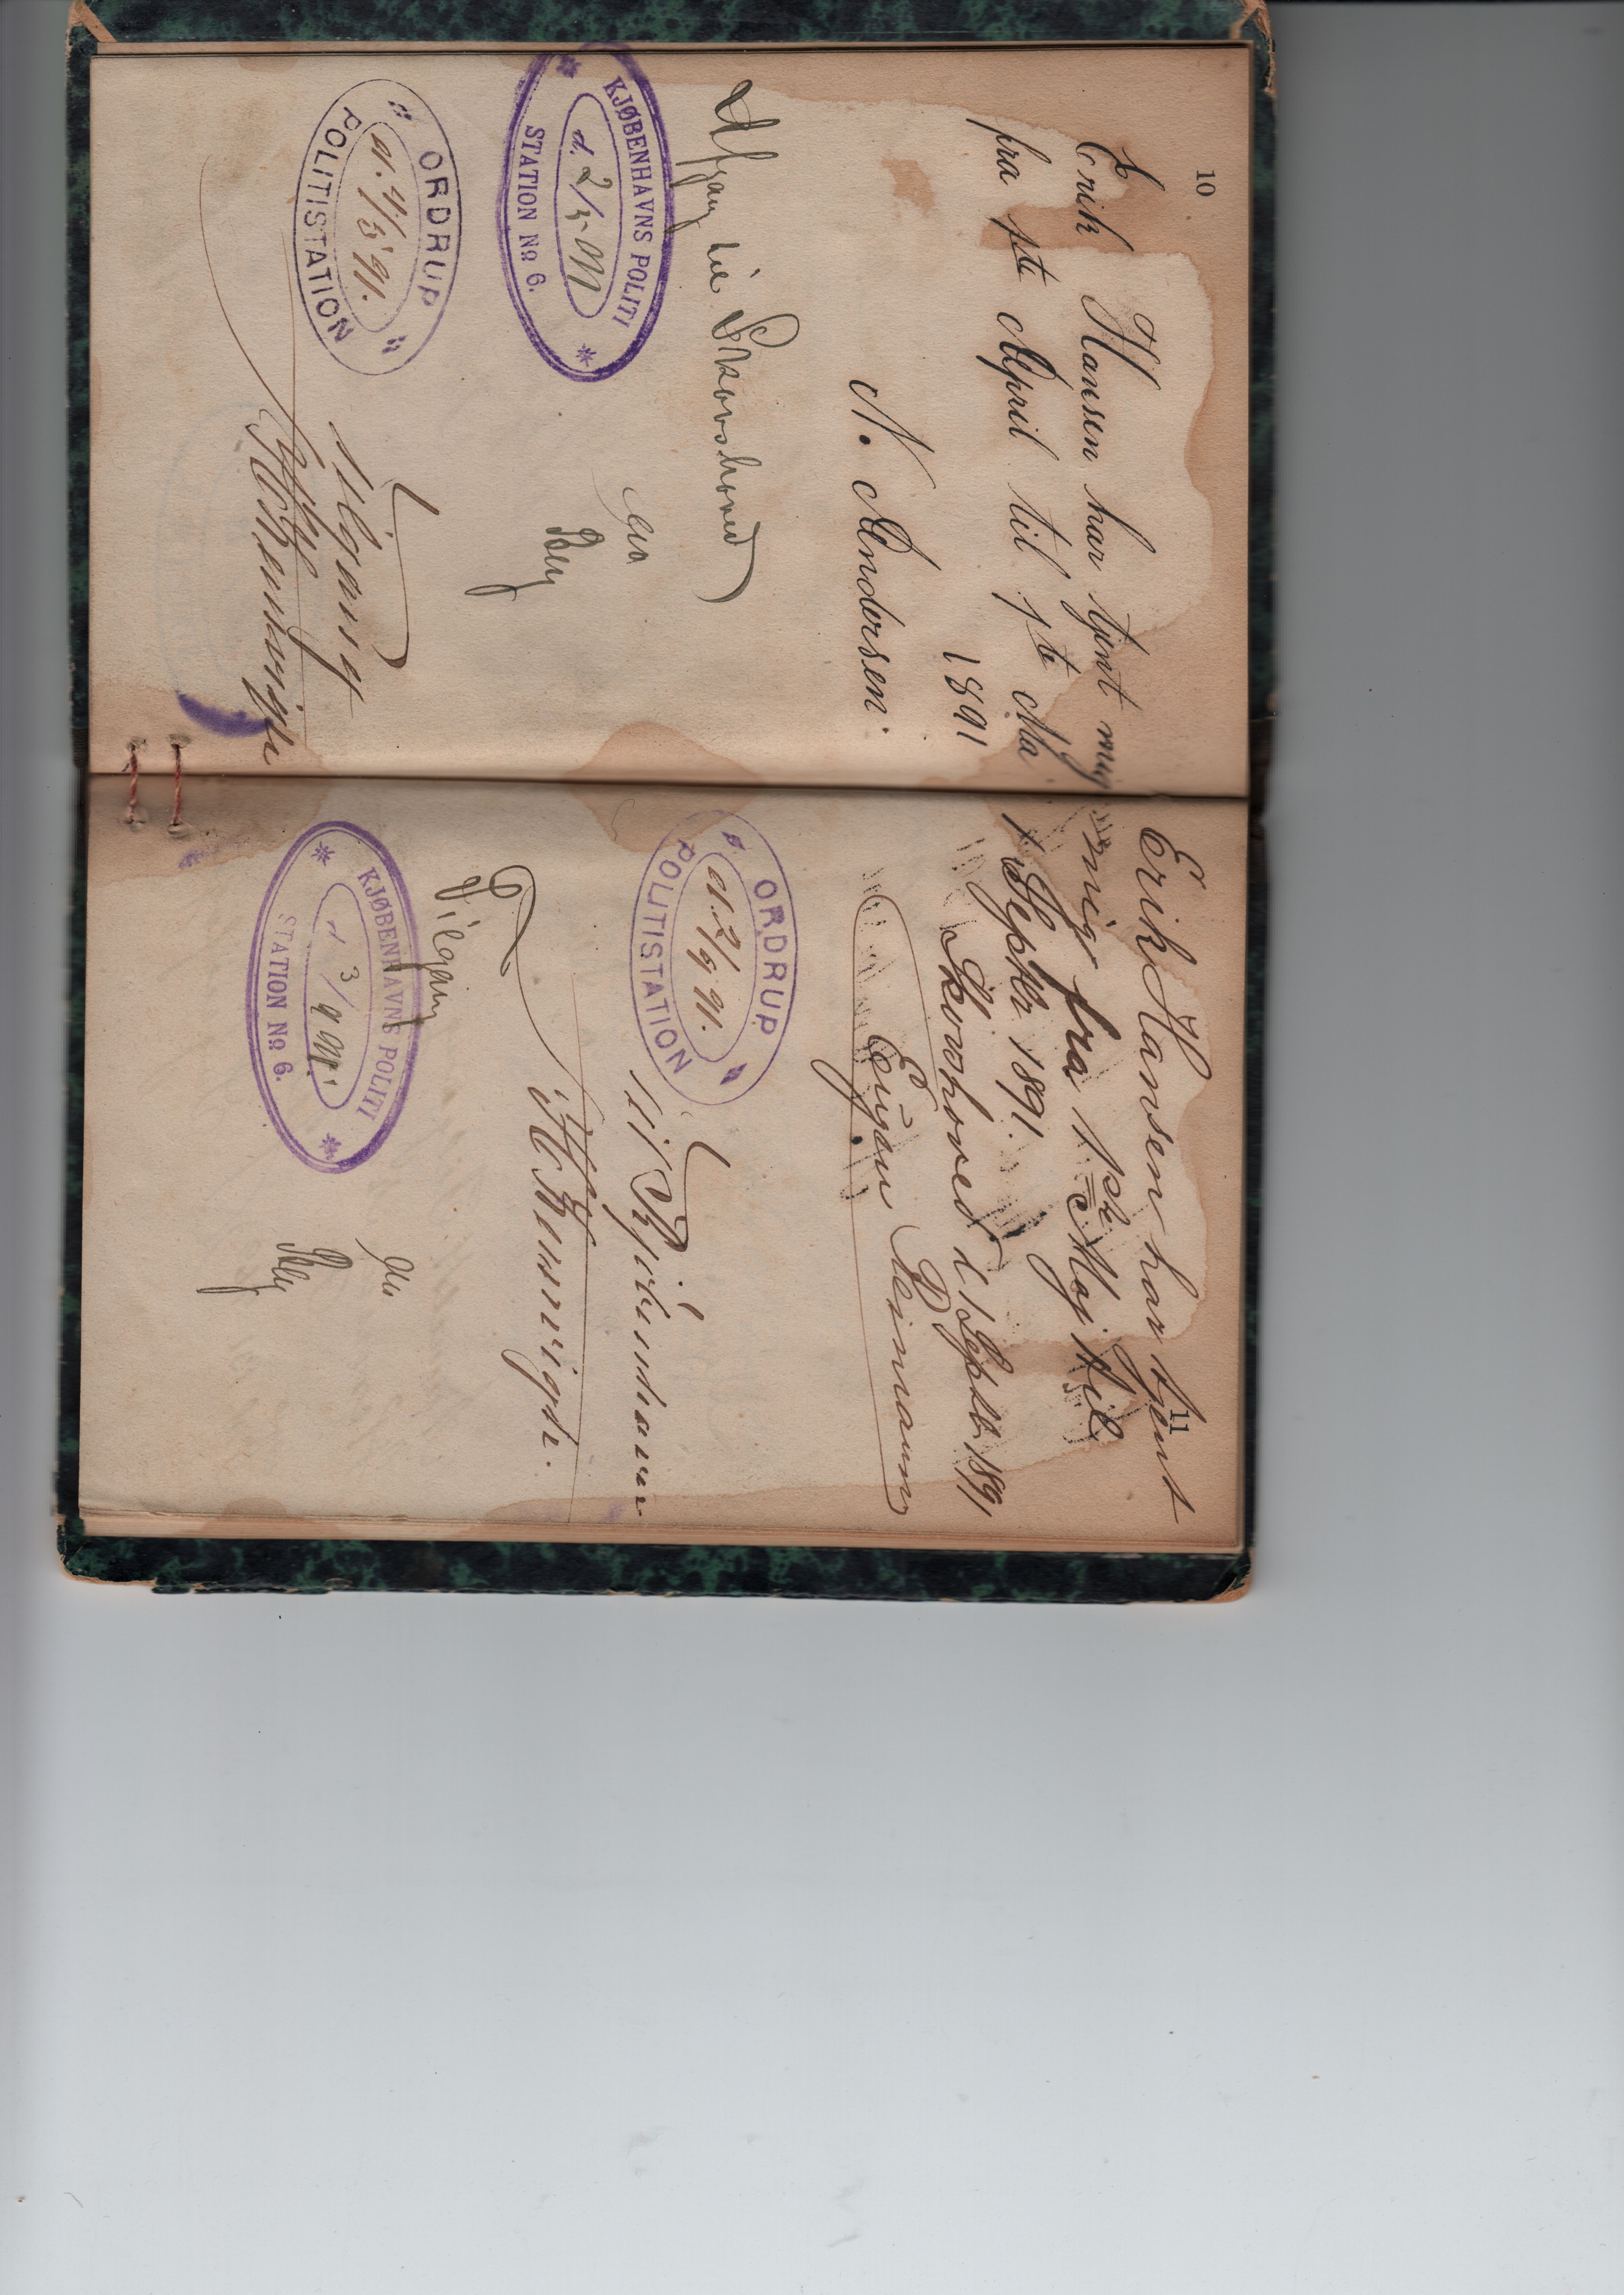 10
Erik Hansen har tjent mig
fra 1ste April til 1ste Maj
1891
N. Andersen.
Afgang til Skovshoved
KJØBENHAVNS POLITI
d. 2/5 91
STATION No 6.
Berg
ORDRUP
d. 4/5 91.
POLITISTATION
Tilgang
11
Erik Hansen har tjent
mig fra 1ste Maj til
1 Septbr 1891.
Skovshoved d 1 Septbr 1891
Eugen Reimann
ORDRUP
d. 2/9 91.
POLITISTATION
til Kjøbenhavn
Tilgang
KJØBENHAVNS POLITI
d 3/9 91.
STATION No 6.
Berg